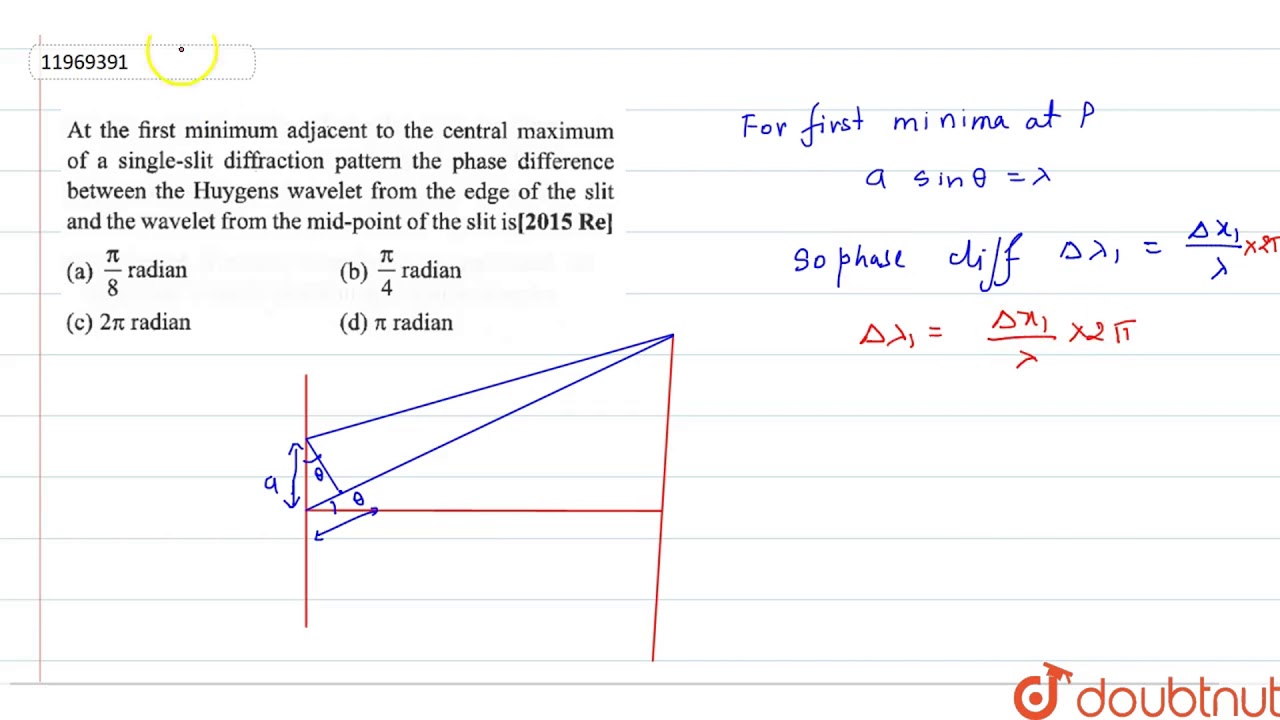 11969391
At the first minimum adjacent to the central maximum
of a single-slit diffraction pattern the phase difference
between the Huygens wavelet from the edge of the slit
and the wavelet from the mid-point of the slit is[2015 Re]
(a) π/8 radian (b) π/4 radian
(c) 2π radian (d) π radian
For first minima at P
a sinθ = λ
So phase diff Δλ₁ = Δx₁/λ ×2π
Δλ₁ = Δx₁/λ ×2π
a
θ
θ
doubtnut